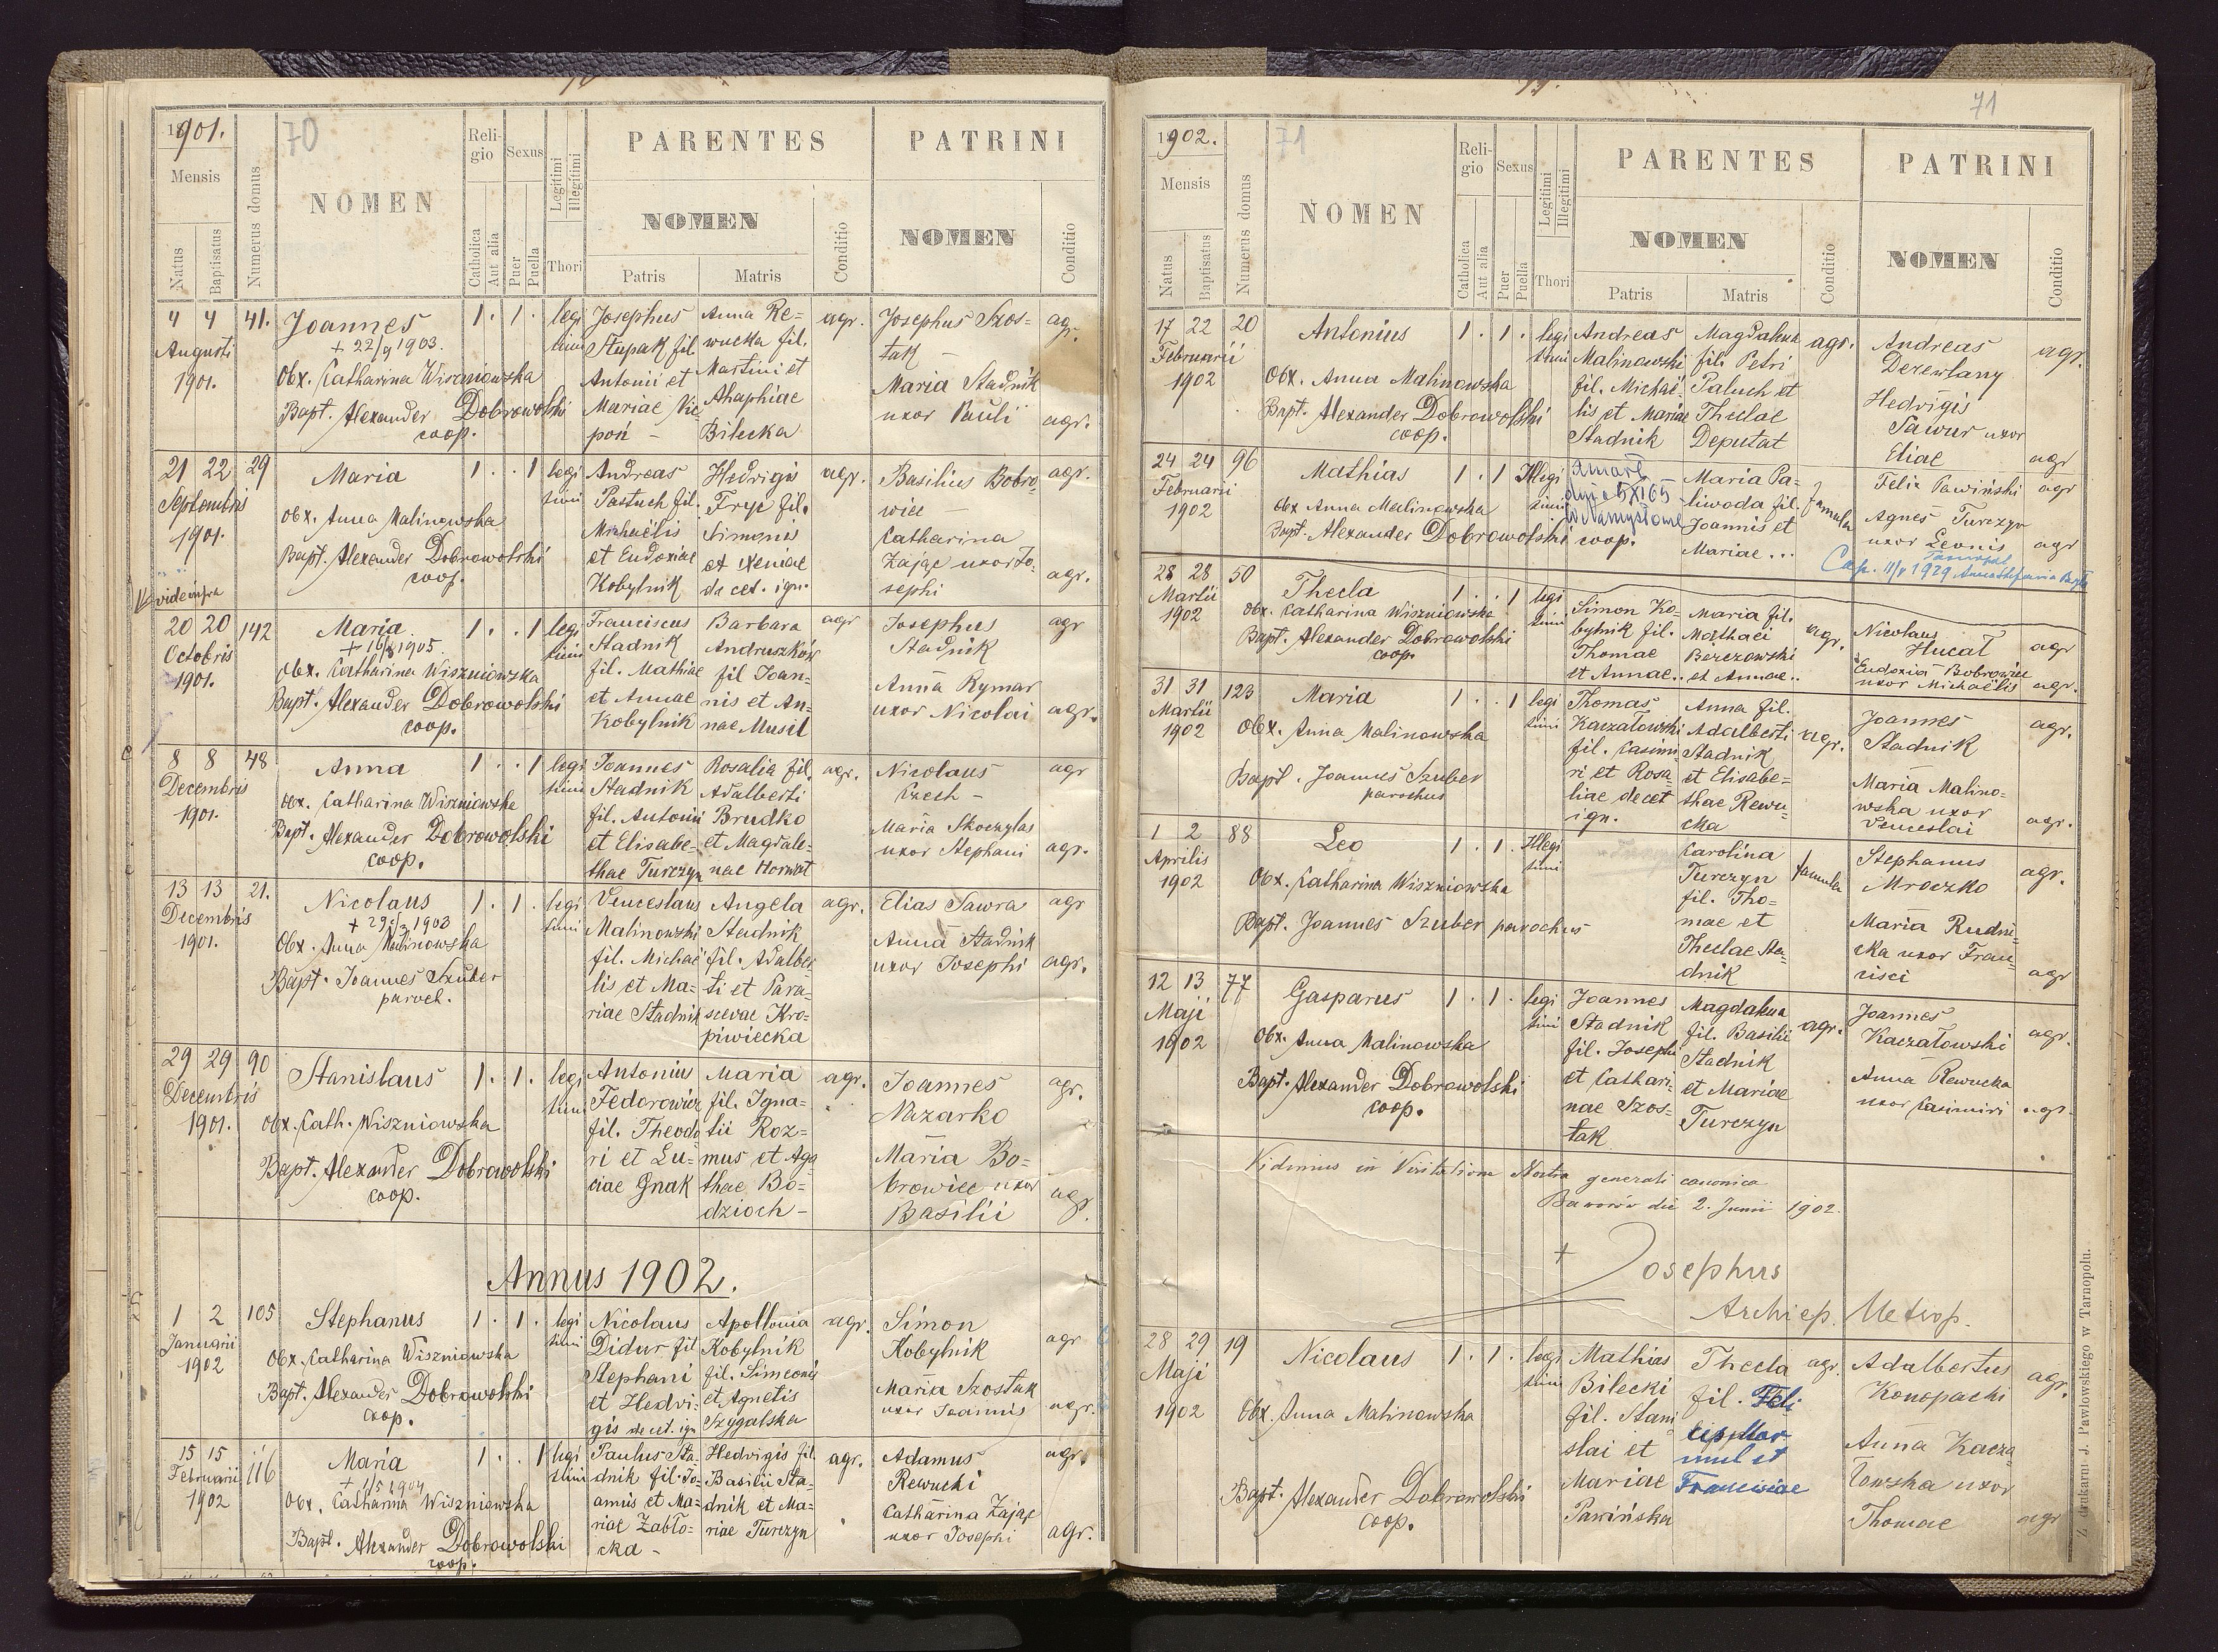 70
1901.
Mensis
Natus
Baptisatus
Numerus domus
NOMEN
Reli-
gio
Catholica
Aut alia
Sexus
Puer
Puella
Legitimi
Illegitimi
Thori
PARENTES
NOMEN
Patris
Matris
Conditio
PATRINI
NOMEN
Conditio
4 4 41.
Augusti
1901.
Joannes
+ 22/9 1903.
Obx. Catharina Wiraniowska
Bapt. Alexander Dobrowolski
coop.
1. 1.
legi
timi
Josephus
Stupak fil
Antonii et
Mariae Vic
poń -
Anna Re=
wucka fil.
Martini et
Ahaphiae
Bilecka
agr.
Josephus Szos=
tak -
Maria Stadnik
uxor Pauli
agr.
agr.
21 22 29
Septembris
1901.
vide infra
Maria
Obx. Anna Malinowska
Bapt. Alexander Dobrowolski
coop.
1. . 1
legi
timi
Andreas
Pastuch fil.
Michaëlis
et Eudoxiae
Kobylnik
Hedvigis
Fryc fil.
Simonis
et Xeniae
de cet. ign.
agr.
Basilius Bobro=
wiec -
Catharina
Zając uxor Jo-
sephi
agr.
agr.
20 20 142
Octobris
1901.
Maria
+ 16/8 1905.
Obx. Catharina Wiszniowska
Bapt. Alexander Dobrowolski
coop.
1. . 1
legi
timi
Franciscus
Stadnik
fil. Mathiae
et Annae
Kobylnik
Barbara
Andruszków
fil Joan-
nis et An-
nae Musil
agr
Josephus
Stadnik
Anna Rymar
uxor Nicolai
agr
agr.
8 8 48
Decembris
1901.
Anna
Obx. Catharina Wiszniowska
Bapt. Alexander Dobrowolski
coop.
1 . . 1
legi
timi
Joannes
Stadnik
fil. Antonii
et Elisabe-
thae Turczyn
Rosalia fil.
Adalberti
Brudko
et Magdale-
nae Horwat
agr.
Nicolaus
Czech -
Maria Skoczylas
uxor Stephani
agr
agr.
13 13 21.
Decembris
1901.
Nicolaus
+ 29/3 1903
Obx. Anna Malinowska
Bapt. Joannes Szuber
paroch.
1. 1.
legi
timi
Venceslaus
Malinowski
fil. Michaë
lis et Ma-
riae Stadnik
Angela
Stadnik
fil. Adalber
ti et Para-
scevae Kro-
piwiecka
agr.
Elias Sawra
Anna Stadnik
uxor Josephi
agr
agr.
29 29 90
Decembris
1901.
Stanislaus
Obx. Cath. Wiszniowska
Bapt. Alexander Dobrowolski
coop.
1. 1.
legi
timi
Antonius
Fedorowicz
fil. Theodo
ri et Lu-
ciae Gnak
Maria
fil. Igna-
tii Roz-
mus et Aga
thae Bo-
dzioch -
agr.
Joannes
Nazarko
Maria Bo-
browiec uxor
Basilii
agr.
agr.
Annus 1902.
1 2 105
Januarii
1902
Stephanus
Obx. Catharina Wiszniowska
Bapt. Alexander Dobrowolski
coop.
1. 1.
legi
timi
Nicolaus
Didur fil
Stephani
et Hedvi-
gis de cet. ign
Apollonia
Kobylnik
fil. Simeonis
et Agnetis
Szygalska
agr.
Simon
Kobylnik
Maria Szostak
uxor Joannis
agr
agr.
15 15 116
Februarii
1902
Maria
Obx. Catharina Wiszniowska
Bapt. Alexander Dobrowolski
coop.
1. . 1
legi
timi
Paulus Sta-
dnik fil. Jo-
annis et Ma-
riae Zabło-
cka -
Hedvigis fil.
Basilii Sta-
dnik et Ma-
riae Turczyn
agr.
Adamus
Rewucki
Catharina Zając
uxor Josephi
agr.
agr.
71
71
1902.
Mensis
Natus
Baptisatus
Numerus domus
NOMEN
Reli-
gio
Catholica
Aut alia
Sexus
Puer
Puella
Legitimi
Illegitimi
Thori
PARENTES
NOMEN
Patris
Matris
Conditio
PATRINI
NOMEN
Conditio
17 22 20
Februarii
1902
Antonius
Obx. Anna Malinowska
Bapt. Alexander Dobrowolski
coop.
1. 1.
legi
timi
Andreas
Malinowski
fil. Michaë
lis et Mariae
Stadnik
Magdalena
fil. Petri
Paluch et
Theclae
Deputat
agr.
Andreas
Derewlany
Hedvigis
Sawur uxor
Eliae
agr.
agr
24 24 96
Februarii
1902
Mathias
Obx Anna Malinowska
Bapt. Alexander Dobrowolski
coop.
1. 1
Illegi
timi
zmarł
dnia 5 XI 65
w Namysłowie
Maria Pa-
liwoda fil.
Joannis et
Mariae ...
famula
Felix Pawiński
Agnes Turczyn
uxor Leonis
agr
agr
Cop. 11/V 1929 Anna Stefania
28 28 50
Martii
1902
Thecla
Obx. Catharina Wiszniowska
Bapt. Alexander Dobrowolski
coop.
1. . 1
legi
timi
Simon Ko-
bylnik fil.
Thomae
et Annae..
Maria fil.
Mathaei
Berezowski
et Annae..
agr.
Nicolaus
Hucał
Eudoxia Bobrowiec
uxor Michaëlis
agr
agr.
31 31 123
Martii
1902
Maria
Obx. Anna Malinowska
Bapt. Joannes Szuber
parochus
1. . 1
legi
timi
Thomas
Kaczałowski
fil. Casimi
ri et Rosa-
liae de cet
ign.
Anna fil.
Adalberti
Stadnik
et Elisabe=
thae Rewu-
cka
agr.
Joannes
Stadnik
Maria Malino-
wska uxor
Venceslai
agr.
agr.
1 2 88
Aprilis
1902
Leo
Obx. Catharina Wiszniowska
Bapt. Joannes Szuber parochus
1. 1.
Illegi
timi
Carolina
Turczyn
fil. Tho-
mae et
Theclae Sta-
dnik
famula
Stephanus
Mroczko
Maria Rudni-
cka uxor Fran-
cisci
agr.
agr
12 13 77
Maji
1902
Gasparus
Obx. Anna Malinowska
Bapt. Alexander Dobrowolski
coop.
1. 1.
legi
timi
Joannes
Stadnik
fil. Josephi
et Cathari-
nae Szos-
tak
Magdalena
fil. Basilii
Stadnik
et Mariae
Turczyn
agr.
Joannes
Kaczałowski
Anna Rewucka
uxor Casimiri
agr.
agr.
Vidimus in Visitatione Nostra generali canonica
Baworów die 2. Junii 1902.
+ Josephus
Archiep. Metrop.
28 29 19
Maji
1902
Nicolaus
Obx. Anna Malinowska
Bapt. Alexander Dobrowolski
coop.
1. 1.
legi
timi
Mathias
Bilecki
fil. Stani
slai et
Mariae
Pawińska
Thecla
fil. Feli
et
Franciscae
agr.
Adalbertus
Konopacki
Anna Kacza
łowska uxor
Thomae
agr.
agr
Z drukarni J. Pawłowskiego w Tarnopolu.